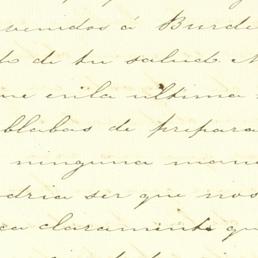 venidos á Burde
de tu salud. M
ne en la ultima
blabas de prepara
ninguna mane
odria ser que nos
ca claramente qu